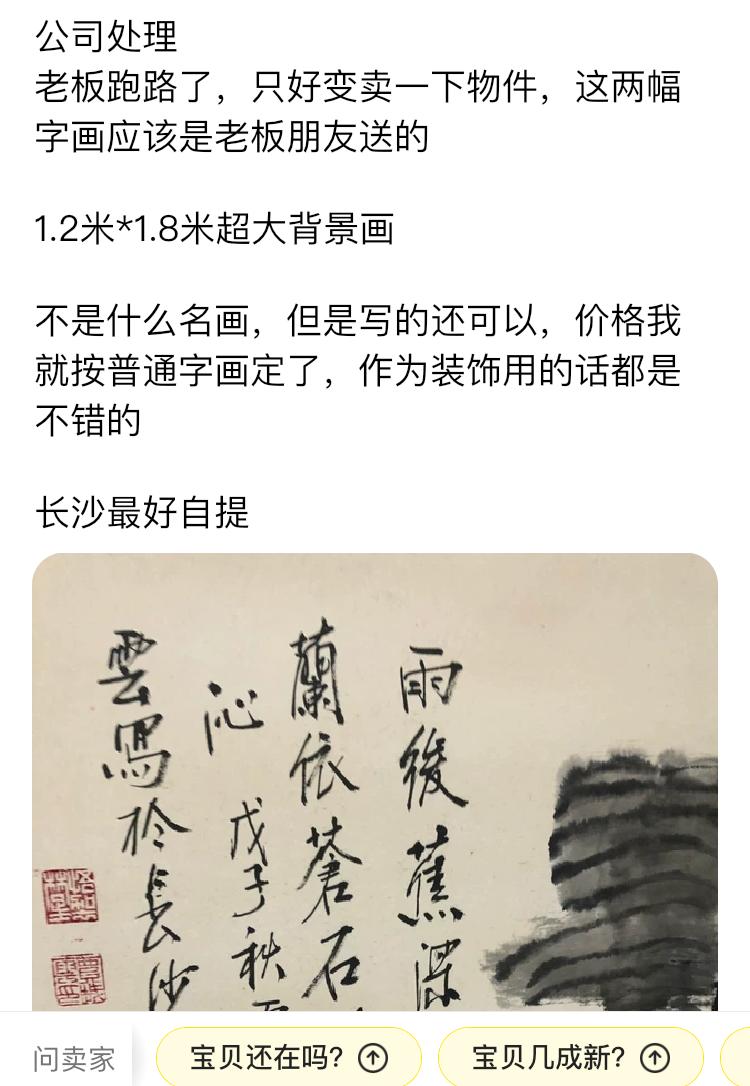 公司处理
老板跑路了，只好变卖一下物件，这两幅
字画应该是老板朋友送的
1.2米*1.8米超大背景画
不是什么名画，但是写的还可以，价格我
就按普通字画定了，作为装饰用的话都是
不错的
长沙最好自提
雨後蕉深
蘭依蒼石
沁
戊子秋
雲寫於長沙
问卖家
宝贝还在吗？
宝贝几成新？